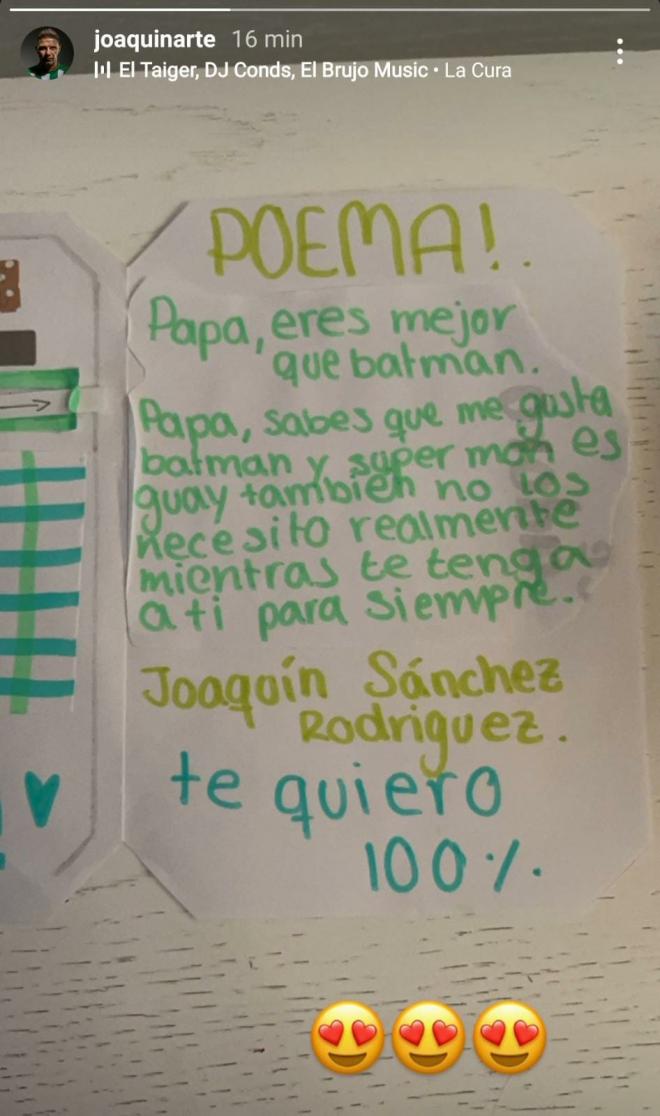 joaquinarte 16 min
El Taiger, DJ Conds, El Brujo Music • La Cura
POEMA!.
Papa, eres mejor
que batman.
Papa, sabes que me gusta
batman y super man es
guay también no los
necesito realmente
mientras te tenga
a ti para siempre.
Joaquín Sánchez
Rodriguez.
te quiero
100%.